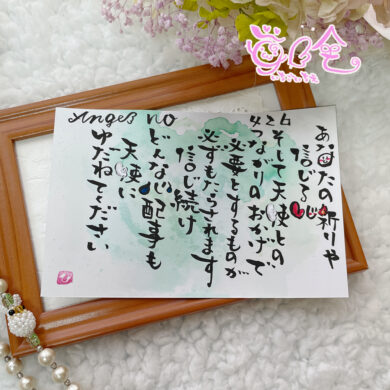 Angels NO 426
あなたの祈りや
信じる心
そして天使との
つながりのおかげで
必要とするものが
必ずもたらされます
信じ続け
どんな心配事も
天使に
ゆだねてください